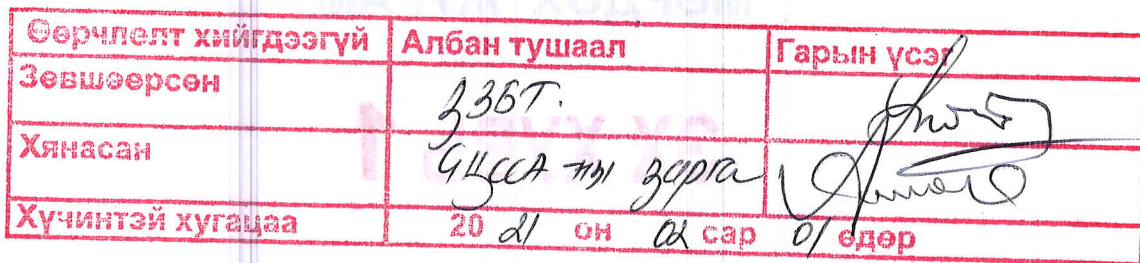 Өөрчлөлт хийгдээгүй Албан тушаал Гарын үсэг
Зөвшөөрсөн ЗЗБТ.
Хянасан ны дарга
Хүчинтэй хугацаа 20 21 он 02 сар 01 өдөр